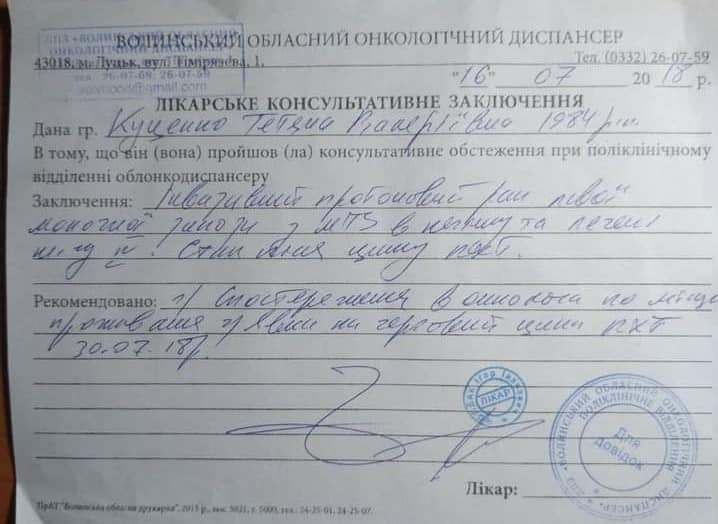 ВОЛИНСЬКИЙ ОБЛАСНИЙ ОНКОЛОГІЧНИЙ ДИСПАНСЕР
43018, м. Луцьк, вул. Тімірязєва, 1, Тел. (0332) 26-07-59
"16" 07 2018 р.
ЛІКАРСЬКЕ КОНСУЛЬТАТИВНЕ ЗАКЛЮЧЕННЯ
Дана гр. Куценко Тетяна Валеріївна 1984 р.н.
В тому, що він (вона) пройшов (ла) консультативне обстеження при поліклінічному
відділенні облонкодиспансеру
Заключення: Інвазивний протоковий рак лівої
молочної залози з МТЗ в та печені
Стан після циклу ПХТ.
Рекомендовано: 1) Спостереження в онколога по місцю
проживання 2) Явка на черговий цикл ПХТ
30.07.18р.
ЛІКАР
ВОЛИНСЬКИЙ ОБЛАСНИЙ ОНКОЛОГІЧНИЙ ДИСПАНСЕР
ПОЛІКЛІНІЧНЕ ВІДДІЛЕННЯ
Для
довідок
Лікар:
ПрАТ "Волинська обласна друкарня", 2015 р., зам. 5021, т. 5000, тел.: 24-25-01, 24-25-07.